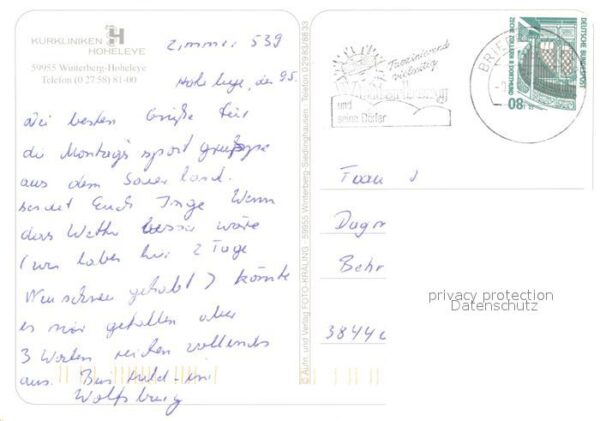 KURKLINIKEN HOHELEYE
59955 Winterberg-Hoheleye
Telefon (0 27 58) 81-00
Zimmer 539
Hoheleye, den 9.5.
die besten Grüße für
die Montags sport gruppe
aus dem Sauerland.
sendet Euch Inge Wenn
das Wetter besser wäre
(wir haben hier 2 Tage
gehabt) könnte
es mir gefallen aber
3 Wochen reichen vollends
aus. Bis bald in
Wolfsburg
© Aufn. und Verlag FOTO-KRÄLING · 59955 Winterberg-Siedlinghausen · Telefon
Faszinierend
vielseitig
Winterberg
und
seine Dörfer
BRIEF
DEUTSCHE BUNDESPOST
ZECHE ZOLLERN II DORTMUND
80
Frau
Dagm
Behr
38440
privacy protection
Datenschutz